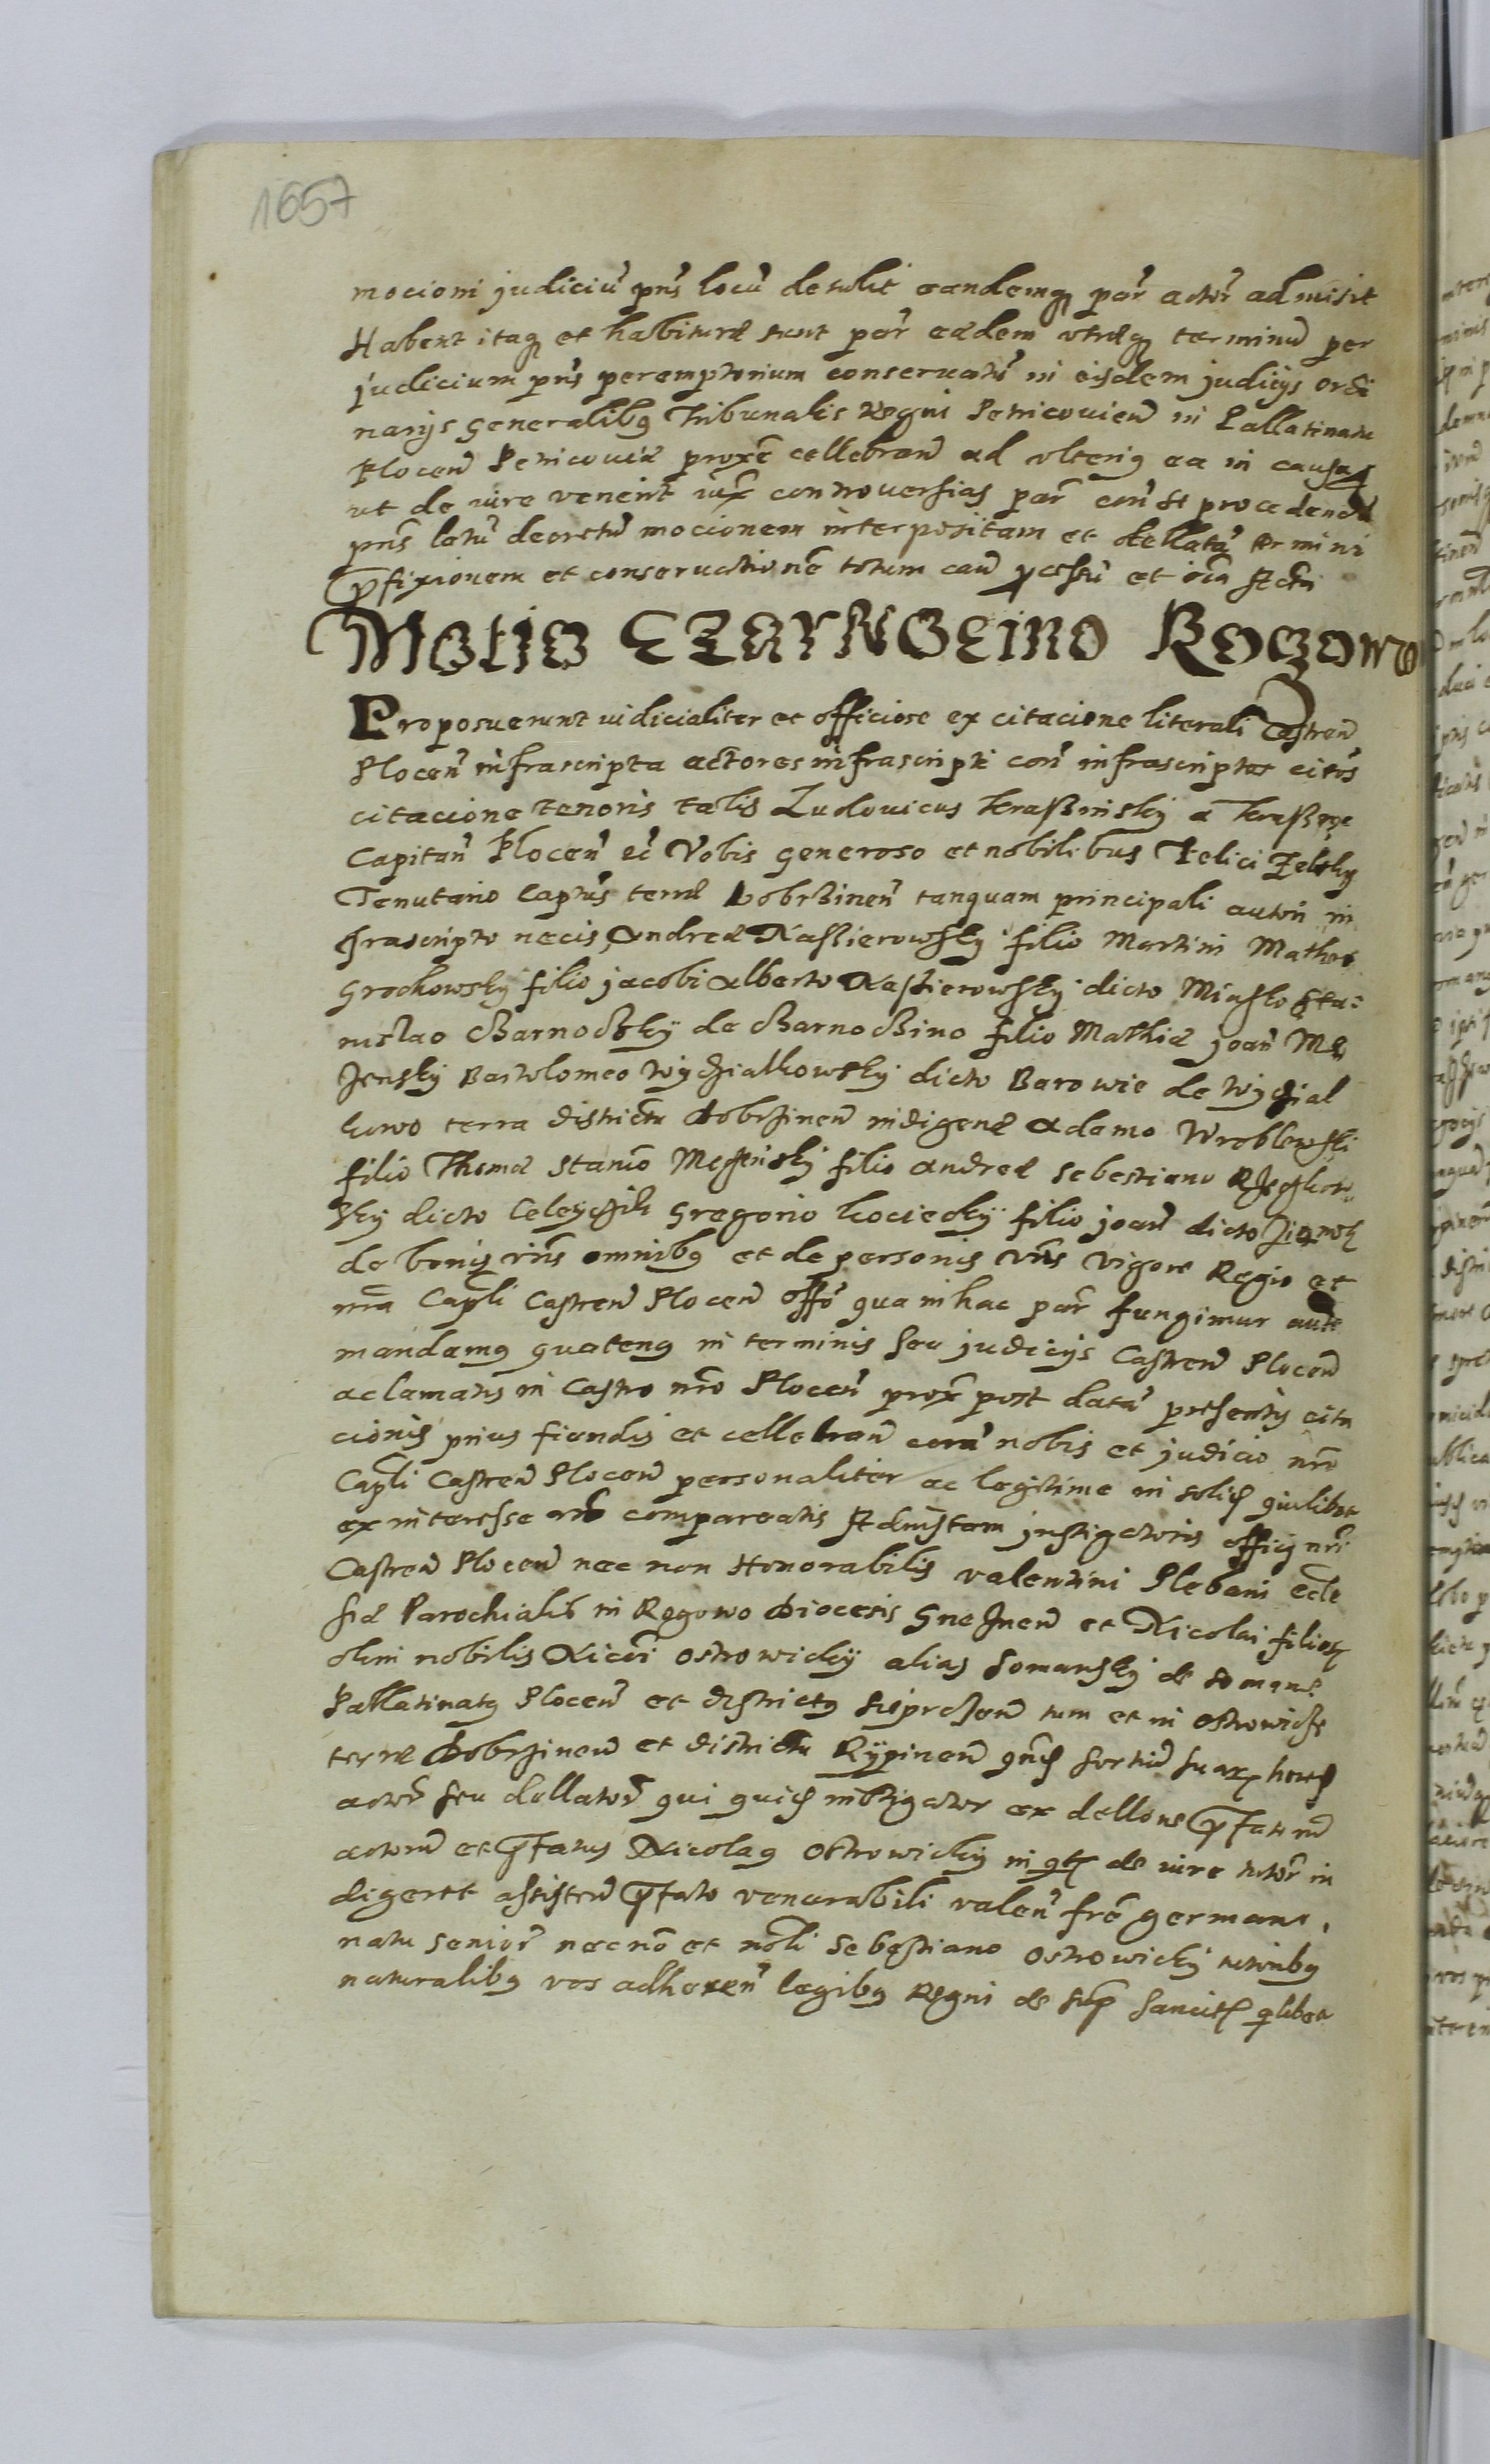 1657
mocioni judiciu pns locu detulit eandemq par actor admisit
Habent itaq et habiturae sunt par eaedem utraeq terminu per
judicium pns peremptorium conservatu in eisdem judicijs ordi
narijs generalibq Tribunalis Regni Petricovien in Pallatinatu
Plocen Petricoviae proxe cellebran ad ulteriq ea in causa
ut de iure venerit iux controversias par eand procedend
pns latu decretu mocionem interpositam et termini
pfixionem et conservationē totum cau pcessu et
Motio Czarnocino Rogowo
Proposuerunt iudicialiter et officiose ex citacione literali Castren
Plocen infrascripta actores infrascripti con infrascriptos citos
citacione tenoris talis Ludovicus Kraßinsky a Kraßne
Capitan Plocen ec Vobis generoso et nobilibus Felici Zelsky
Tenutario Captus terrae Dobrzinen tanquam principali autori in
frascripto necis Andreae Naßierowsky filio Martini Matheo
Grochowsky filio jacobi Alberto Naßierowsky dicto Miasko Sta:
nislao Charnodsky de Charnodzino filio Mathiae joan Me
Jensky Bartolomeo Wyczialkowsky dicto Barowie de Wyczial
kowo terra districtu Dobrzinen indigenae Adamo Wroblewski
filio Thomae Stanio filio Andreae Sebestiano
sky dicto Celeyczik Gregorio Kociecky filio joan dicto
de bonis vris omnibq et de personis vris vigore Regio et
nra Capli Castren Plocen offo qua in hac par fungimur autte
mandamq quatenq in terminis seu judicijs Castren Plocen
aclamatis in Castro nro Plocen prox post data presentis cita
cionis prius fiendis et cellebran cora nobis et judicio nro
Capli Castren Plocen personaliter ac legitime in solid quilibet
ex interesse nro compareatis Ad instam instigatoris officij nri
Castren Plocen nec non Honorabilis Valentini Plebani eccle
siae Parochialis in Rogowo Diocesis Gnesnen et Nicolai filior
olim nobilis Nicoi Ostrowicky alias Somansky de Somane
Pallatinatq Plocen et districtq Sieprczen tum et in Ostrowicze
terrae Dobrzinen et districtu Rypinen sortiu suar hered
actor seu dellator qui quid instigator ex dellone pfator
actoru et pfatus Nicolaq Ostrowicky in de iure tutor in
digeret assisten pfato venerabili valen fre germano
natu senior necno et nobli Sebestiano Ostrowicky tutoribq
naturalibq vos adheren legibq Regni de sup sancit qlibet